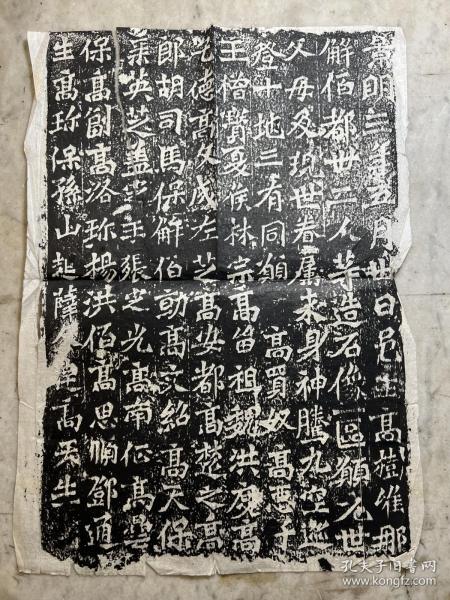 景明三年五月卅日邑主高樹維那
解佰都卅二人等造石像一區願元世
父母及現世眷屬來身神騰九空迹
登十地三有同願高買奴高惡子
王僧寶夏侯林宗高留祖魏洪度高
乞德高文成左芝高安都高楚之高
郎胡司馬保解佰勛高文紹高天保
英芝蓋定王張芝光高南征高曇
保高副高洛珍楊洪佰高思順鄧通
生高珍保孫山起薩高天生
孔夫子旧书网
www.kongfz.com